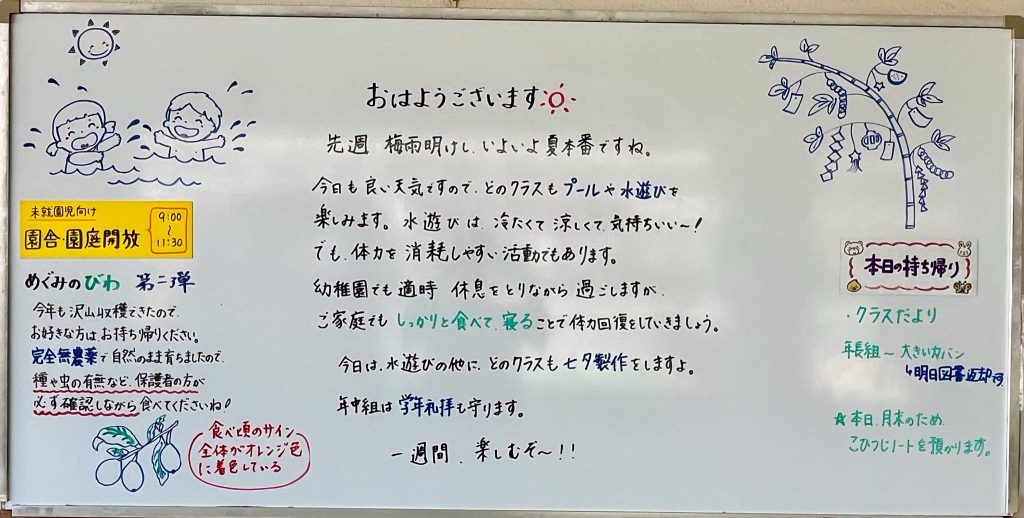 おはようございます
先週 梅雨明けし、いよいよ夏本番ですね。
今日も良い天気ですので、どのクラスもプールや水遊びを
楽しみます。水遊びは、冷たくて涼しくて気持ちいい〜!
でも、体力を消耗しやすい活動でもあります。
幼稚園でも適時 休息をとりながら過ごしますが、
ご家庭でもしっかりと食べて、寝ることで体力回復をしていきましょう。
今日は、水遊びの他に、どのクラスも七夕製作をしますよ。
年中組は学年礼拝も守ります。
一週間、楽しむぞ〜!!
未就園児向け
園舎・園庭開放
9:00
〜
11:30
めぐみのびわ 第二弾
今年も沢山収穫できたので、
お好きな方は、お持ち帰りください。
完全無農薬で自然のまま育ちましたので、
種や虫の有無など、保護者の方が
必ず確認しながら食べてくださいね!
食べ頃のサイン
全体がオレンジ色
に着色している
本日の持ち帰り
・クラスだより
年長組〜大きいカバン
↳明日図書返却可
☆本日、月末のため
こひつじノートを預かります。